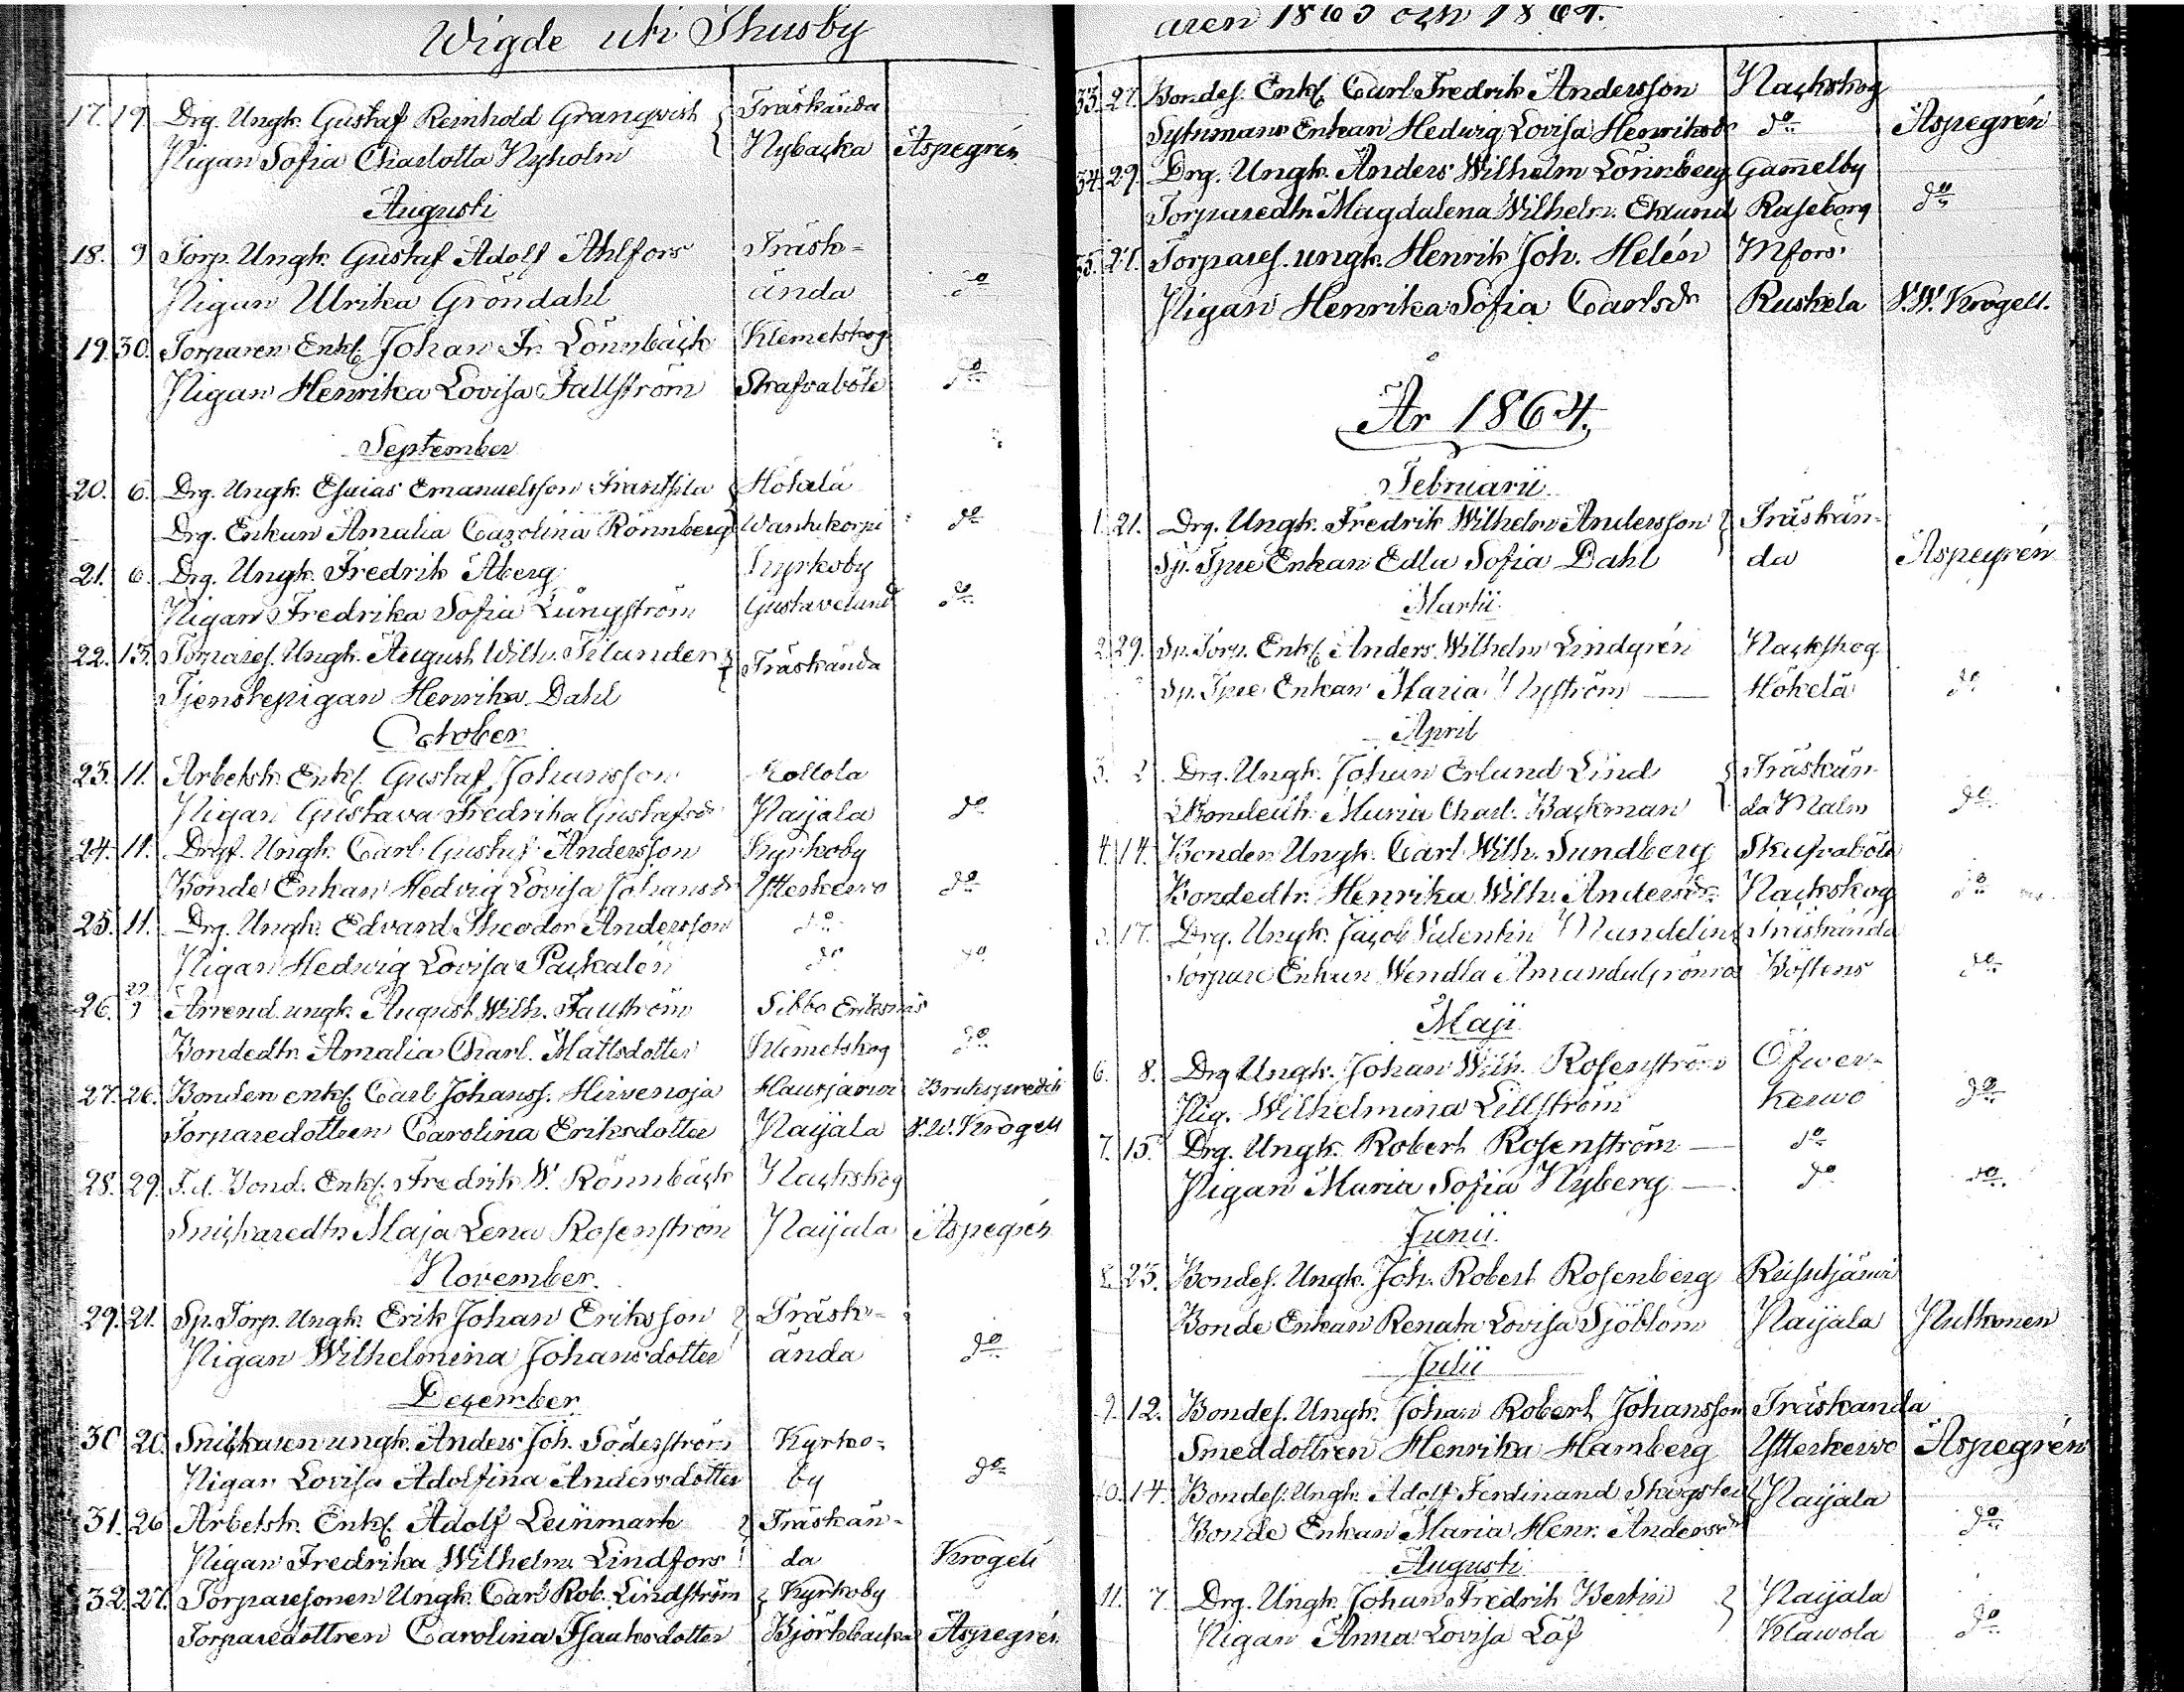 Wigde uti Thusby
17. 19. Drg. Ungk. Gustaf Reinhold Granqvist Träskända
Pigan Sofia Charlotta Nyholm Nybacka Aspegrén
Augusti
18. 9 Torp. Ungk. Gustaf Adolf Ahlfors Träsk=
Pigan Ulrika Gröndahl ända do
19. 30. Torparen Enkl. Johan Fr. Lönnbäck Klemetskog
Pigan Henrika Lovisa Fallström Skrafvaböle do
September
20. 6. Drg. Ungk. Esaias Emanuelsson Frantsila Hökälä
Drg. Enkan Amalia Carolina Rönnberg do
21. 6. Drg. Ungk. Fredrik Åberg Kyrkoby
Pigan Fredrika Sofia Ljungström Gustavelund do
22. 13. Torpares. Ungk. August Wilh. Filander Träskända
Tjenstepigan Henrika Dahl
October
23. 11. Arbetsk. Enkl. Gustaf Johansson Kollola
Pigan Gustava Fredrika Gustafsdr Paijala do
24. 11. Ungk. Carl Gustaf Andersson Kyrkoby
Bonde Enkan Hedvig Lovisa Johansdr Ytterkervo do
25. 11. Drg. Ungk. Edvard Theodor Andersson do
Pigan Hedwig Lovisa Packalén do do
26. Arrend. ungk. August Wilh. Sibbo Eriksnäs
Bondedtr. Amalia Charl. Mattsdotter Klemetskog do
27. 26. Bonden enkl. Carl Johanss. Hirvenoja Hausjärvi Brukspredik
Torparedottren Carolina Eriksdotter Paijala V.W. Krogell
28. 29. F.d. Bond. Enkl. Fredrik W. Rönnbäck Nackskog
Snickaredtr Maja Lena Rosenström Paijala Aspegrén
November.
29. 21. Sp. Torp. Ungk. Erik Johan Eriksson Träsk=
Pigan Wilhelmina Johansdotter ända do
December
30 26. Snickaren ungk. Anders Joh. Söderström Kyrko=
Pigan Lovisa Adolfina Andersdotter by do
31. 26 Arbetsk. Enkl. Adolf Leinmark Träskän=
Pigan Fredrika Wilhelm. Lindfors da Krogell
32. 27. Torparesonen Ungk. Carl Rob. Lindström Kyrkoby
Torparedottren Carolina Isaaksdotter Björkbacka Aspegrén
åren 1863 och 1864.
33. 27. Bondes. Enkl. Carl Fredrik Andersson Nackskog
Sytnings Enkan Hedwig Lovisa Henriksdr do Aspegrén
34. 29. Drg. Ungk. Anders Wilhelm Lönnberg Gammelby
Torparedtr. Magdalena Wilhelm. Eklund Raseborg do
35. 27. Torpares. ungk. Henrik Joh. Helén Mfors
Pigan Henrika Sofia Carlsdr Ruskela V.W. Krogell.
År 1864.
Februarii
1. 21. Drg. Ungk. Fredrik Wilhelm Andersson Träskän-
Sp. Tpre Enkan Edla Sofia Dahl da Aspegrén
Martii
2. 29. Sp. Torp. Enkl. Anders Wilhelm Lindgrén Nackskog
Sp. Tpre Enkan Maria Nyström Hökelä do
April
3. 2. Drg. Ungk. Johan Erlund Lind Träskän
Bondedtr. Maria Charl. Backman da Malm do
4. 14. Bonden Ungk. Carl Wilh. Sundberg Skafvaböle
Bondedtr. Henrika Wilh. Andersdr. Nackskog do
5. 17. Drg. Ungk. Jacob Valentin Mandelin Träskända
Torpare Enkan Wendla Amanda Grönroos Böstens do
Maji
6. 8. Drg Ungk. Johan Wilh. Rosenström Öfwer-
Pig. Wilhelmina Lillström kerwo do
7. 15. Drg. Ungk. Robert Rosenström do
Pigan Maria Sofia Nyberg do do
Junii.
8. 23. Bondes. Ungk. Joh. Robert Rosenberg Ruisutjärvi
Bonde Enkan Renata Lovisa Sjöblom Paijala Putkonen
Julii
9. 12. Bondes. Ungk. Johan Robert Johansson Träskända
Smeddottren Henrika Hamberg Ytterkerwo Aspegrén
10. 14. Bondes. Ungk. Adolf Ferdinand Skogster Paijala
Bonde Enkan Maria Henr. Andersdr do
Augusti
11. 7. Drg. Ungk. Johan Fredrik Bertin Paijala
Pigan Anna Lovisa Löf Klawola do